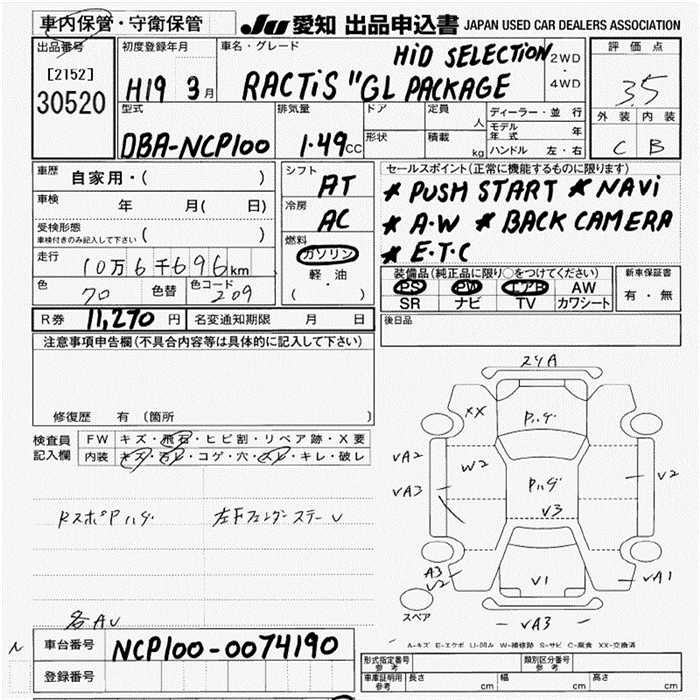 車内保管・守衛保管
JU 愛知 出品申込書 JAPAN USED CAR DEALERS ASSOCIATION
出品番号
[2152]
30520
初度登録年月
H19 3月
車名・グレード
HiD SELECTION
RACTiS "GL PACKAGE
2WD
・
4WD
評価点
3.5
外装 内装
C B
型式
DBA-NCP100
排気量
1.49CC
ドア
形状
定員
人
積載
kg
ディーラー・並行
モデル年式 年
ハンドル 左・右
車歴
自家用・( )
車検
年 月( 日)
受検形態
車検付きのみ記入して下さい ( )
走行
10万6千696km
色
70
色替
色コード
209
シフト
AT
冷房
AC
燃料
ガソリン
軽・油
( )
セールスポイント(正常に機能するものに限ります)
* PUSH START * NAVi
* A・W * BACK CAMERA
* E・T・C
装備品(純正品に限り○をつけてください)
PS PW エアB AW
SR ナビ TV カワシート
新車保証書
有・無
R券 11,270 円
名変通知期限 月 日
後日品
注意事項申告欄(不具合内容等は具体的に記入して下さい)
修復歴 有 (箇所
検査員
記入欄
FW キズ・飛石・ヒビ割・リペア跡・X要
内装 キズ・汚レ・コゲ・穴・スレ・キレ・破レ
RスポPハゲ
左Fフェンダーステー U
各AU
24A
XX
Pハゲ
VA2
W2
VA3
Pハゲ
V3
V2
A3
V2
V1
VA1
スペア
VA3
A-キズ E-エクボ U-凹み W-補修跡 S-サビ C-腐食 XX-交換済
車台番号 NCP100-0074190
登録番号
形式指定番号
参考
類別区分番号
参考
車庫証明用
参考
長さ cm
幅 cm
高さ cm